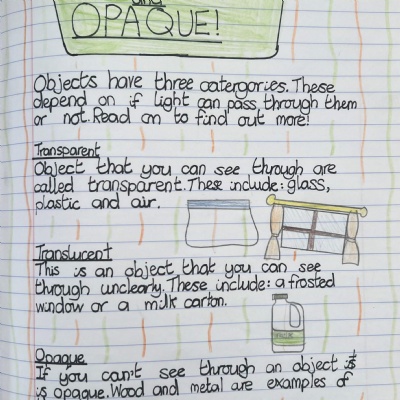 and
OPAQUE!
Objects have three catergories. These
depend on if light can pass through them
or not. Read on to find out more!
Transparent
Object that you can see through are
called transparent. These include: glass,
plastic and air.
Translucent
This is an object that you can see
through unclearly. These include: a frosted
window or a milk carton.
Opaque
If you can't see through an object it
is opaque. Wood and metal are examples of